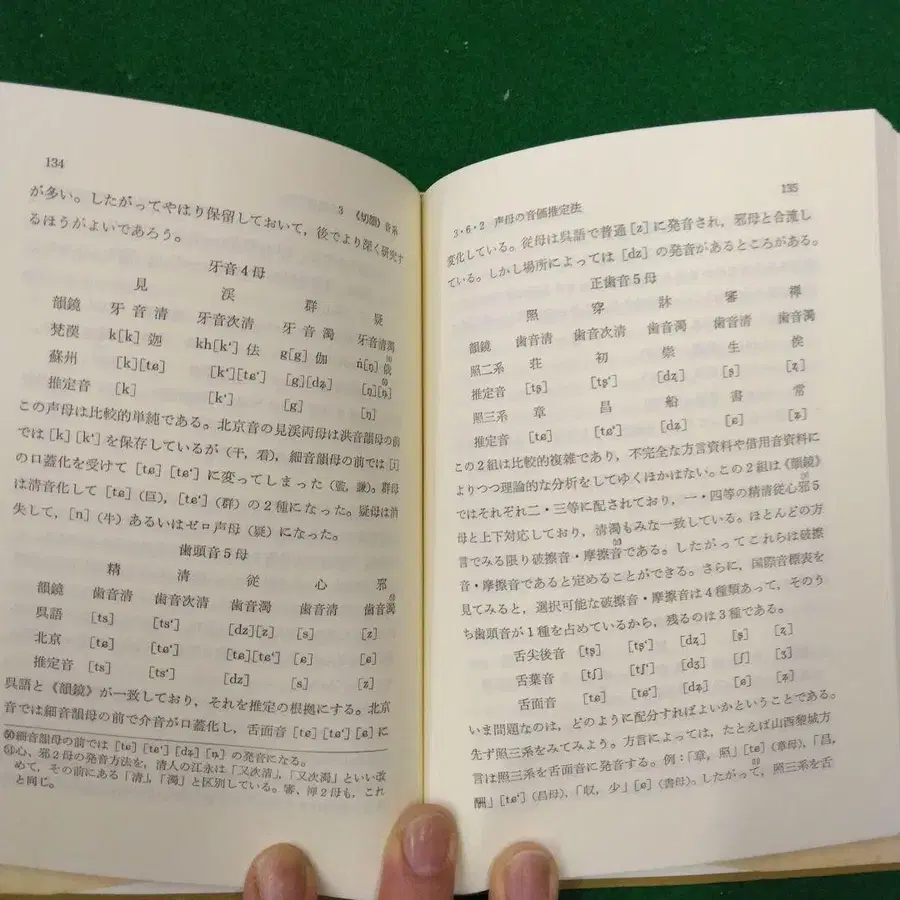 134
3 《切韻》音系
が多い。したがってやはり保留しておいて，後でより深く研究す
るほうがよいであろう。
牙音4母
見 渓 群 疑
韻鏡 牙音清 牙音次清 牙音濁 牙音清濁
梵漢 k[k] 迦 kh[k‘] 佉 g[g] 伽 ṅ[ŋ] 俄
蘇州 [k][tɕ] [k‘][tɕ‘] [g][dʑ] [ŋ][ȵ]
推定音 [k] [k‘] [g] [ŋ]
この声母は比較的単純である。北京音の見渓両母は洪音韻母の前
では [k] [k‘] を保存しているが（干，看），細音韻母の前では [i]
の口蓋化を受けて [tɕ] [tɕ‘] に変ってしまった（監，謙）。群母
は清音化して [tɕ]（巨），[tɕ‘]（群）の2種になった。疑母は消
失して，[n]（牛）あるいはゼロ声母（疑）になった。
歯頭音5母
精 清 従 心 邪
韻鏡 歯音清 歯音次清 歯音濁 歯音清 歯音濁
呉語 [ts] [ts‘] [dz][z] [s] [z]
北京 [tɕ] [tɕ‘] [tɕ][tɕ‘] [ɕ] [ɕ]
推定音 [ts] [ts‘] [dz] [s] [z]
呉語と《韻鏡》が一致しており，それを推定の根拠にする。北京
音では細音韻母の前で介音が口蓋化し，舌面音 [tɕ] [tɕ‘] [ɕ] に
㊿細音韻母の前では [tɕ] [tɕ‘] [dʑ] [ȵ] の発音になる。
51心，邪2母の発音方法を，清人の江永は「又次清」，「又次濁」といい改
めて，その前にある「清」，「濁」と区別している。審，禅2母も，これ
と同じ。
3・6・2 声母の音価推定法
135
変化している。従母は呉語で普通 [z] に発音され，邪母と合流し
ている。しかし場所によっては [dz] の発音があるところがある。
正歯音5母
照 穿 牀 審 禅
韻鏡 歯音清 歯音次清 歯音濁 歯音清 歯音濁
照二系 荘 初 崇 生 俟
推定音 [tʂ] [tʂ‘] [dʐ] [ʂ] [ʐ]
照三系 章 昌 船 書 常
推定音 [tɕ] [tɕ‘] [dʑ] [ɕ] [ʑ]
この2組は比較的複雑であり，不完全な方言資料や借用音資料に
よりつつ理論的な分析をしてゆくほかはない。この2組は《韻鏡》
ではそれぞれ二・三等に配されており，一・四等の精清従心邪5
母と上下対応しており，清濁もみな一致している。ほとんどの方
言でみる限り破擦音・摩擦音である。したがってこれらは破擦
音・摩擦音であると定めることができる。さらに，国際音標表を
見てみると，選択可能な破擦音・摩擦音は4種類あって，そのう
ち歯頭音が1種を占めているから，残るのは3種である。
舌尖後音 [tʂ] [tʂ‘] [dʐ] [ʂ] [ʐ]
舌葉音 [tʃ] [tʃ‘] [dʒ] [ʃ] [ʒ]
舌面音 [tɕ] [tɕ‘] [dʑ] [ɕ] [ʑ]
いま問題なのは，どのように配分すればよいかということである。
先ず照三系をみてみよう。方言によっては，たとえば山西黎城方
言は照三系を舌面音に発音する。例：「章，照」[tɕ]（章母），「昌，
酬」[tɕ‘]（昌母），「収，少」[ɕ]（書母）。したがって，照三系を舌